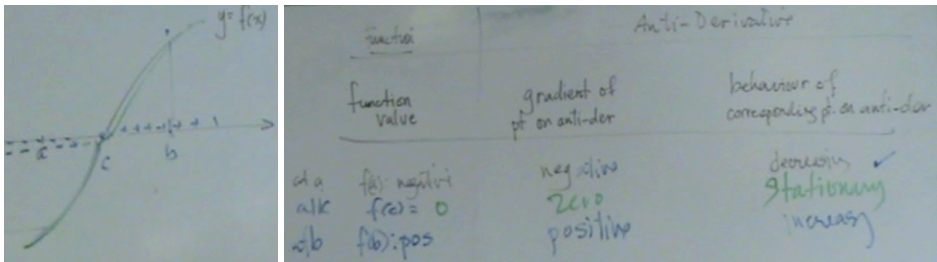 y=f(x)
a
c
b
Function
Anti-Derivative
function value
gradient of pt on anti-der
behaviour of corresponding pt. on anti-der
at a f(a): negative negative decreasing ✓
at c f(c) = 0 zero stationary
at b f(b): pos positive increasing